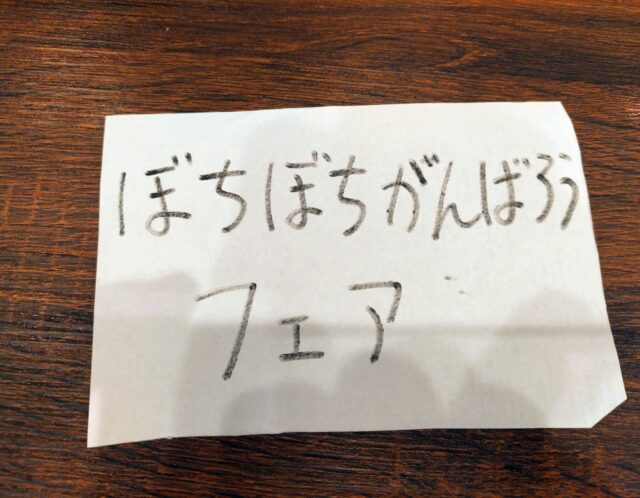 ぼちぼちがんばろう
フェア